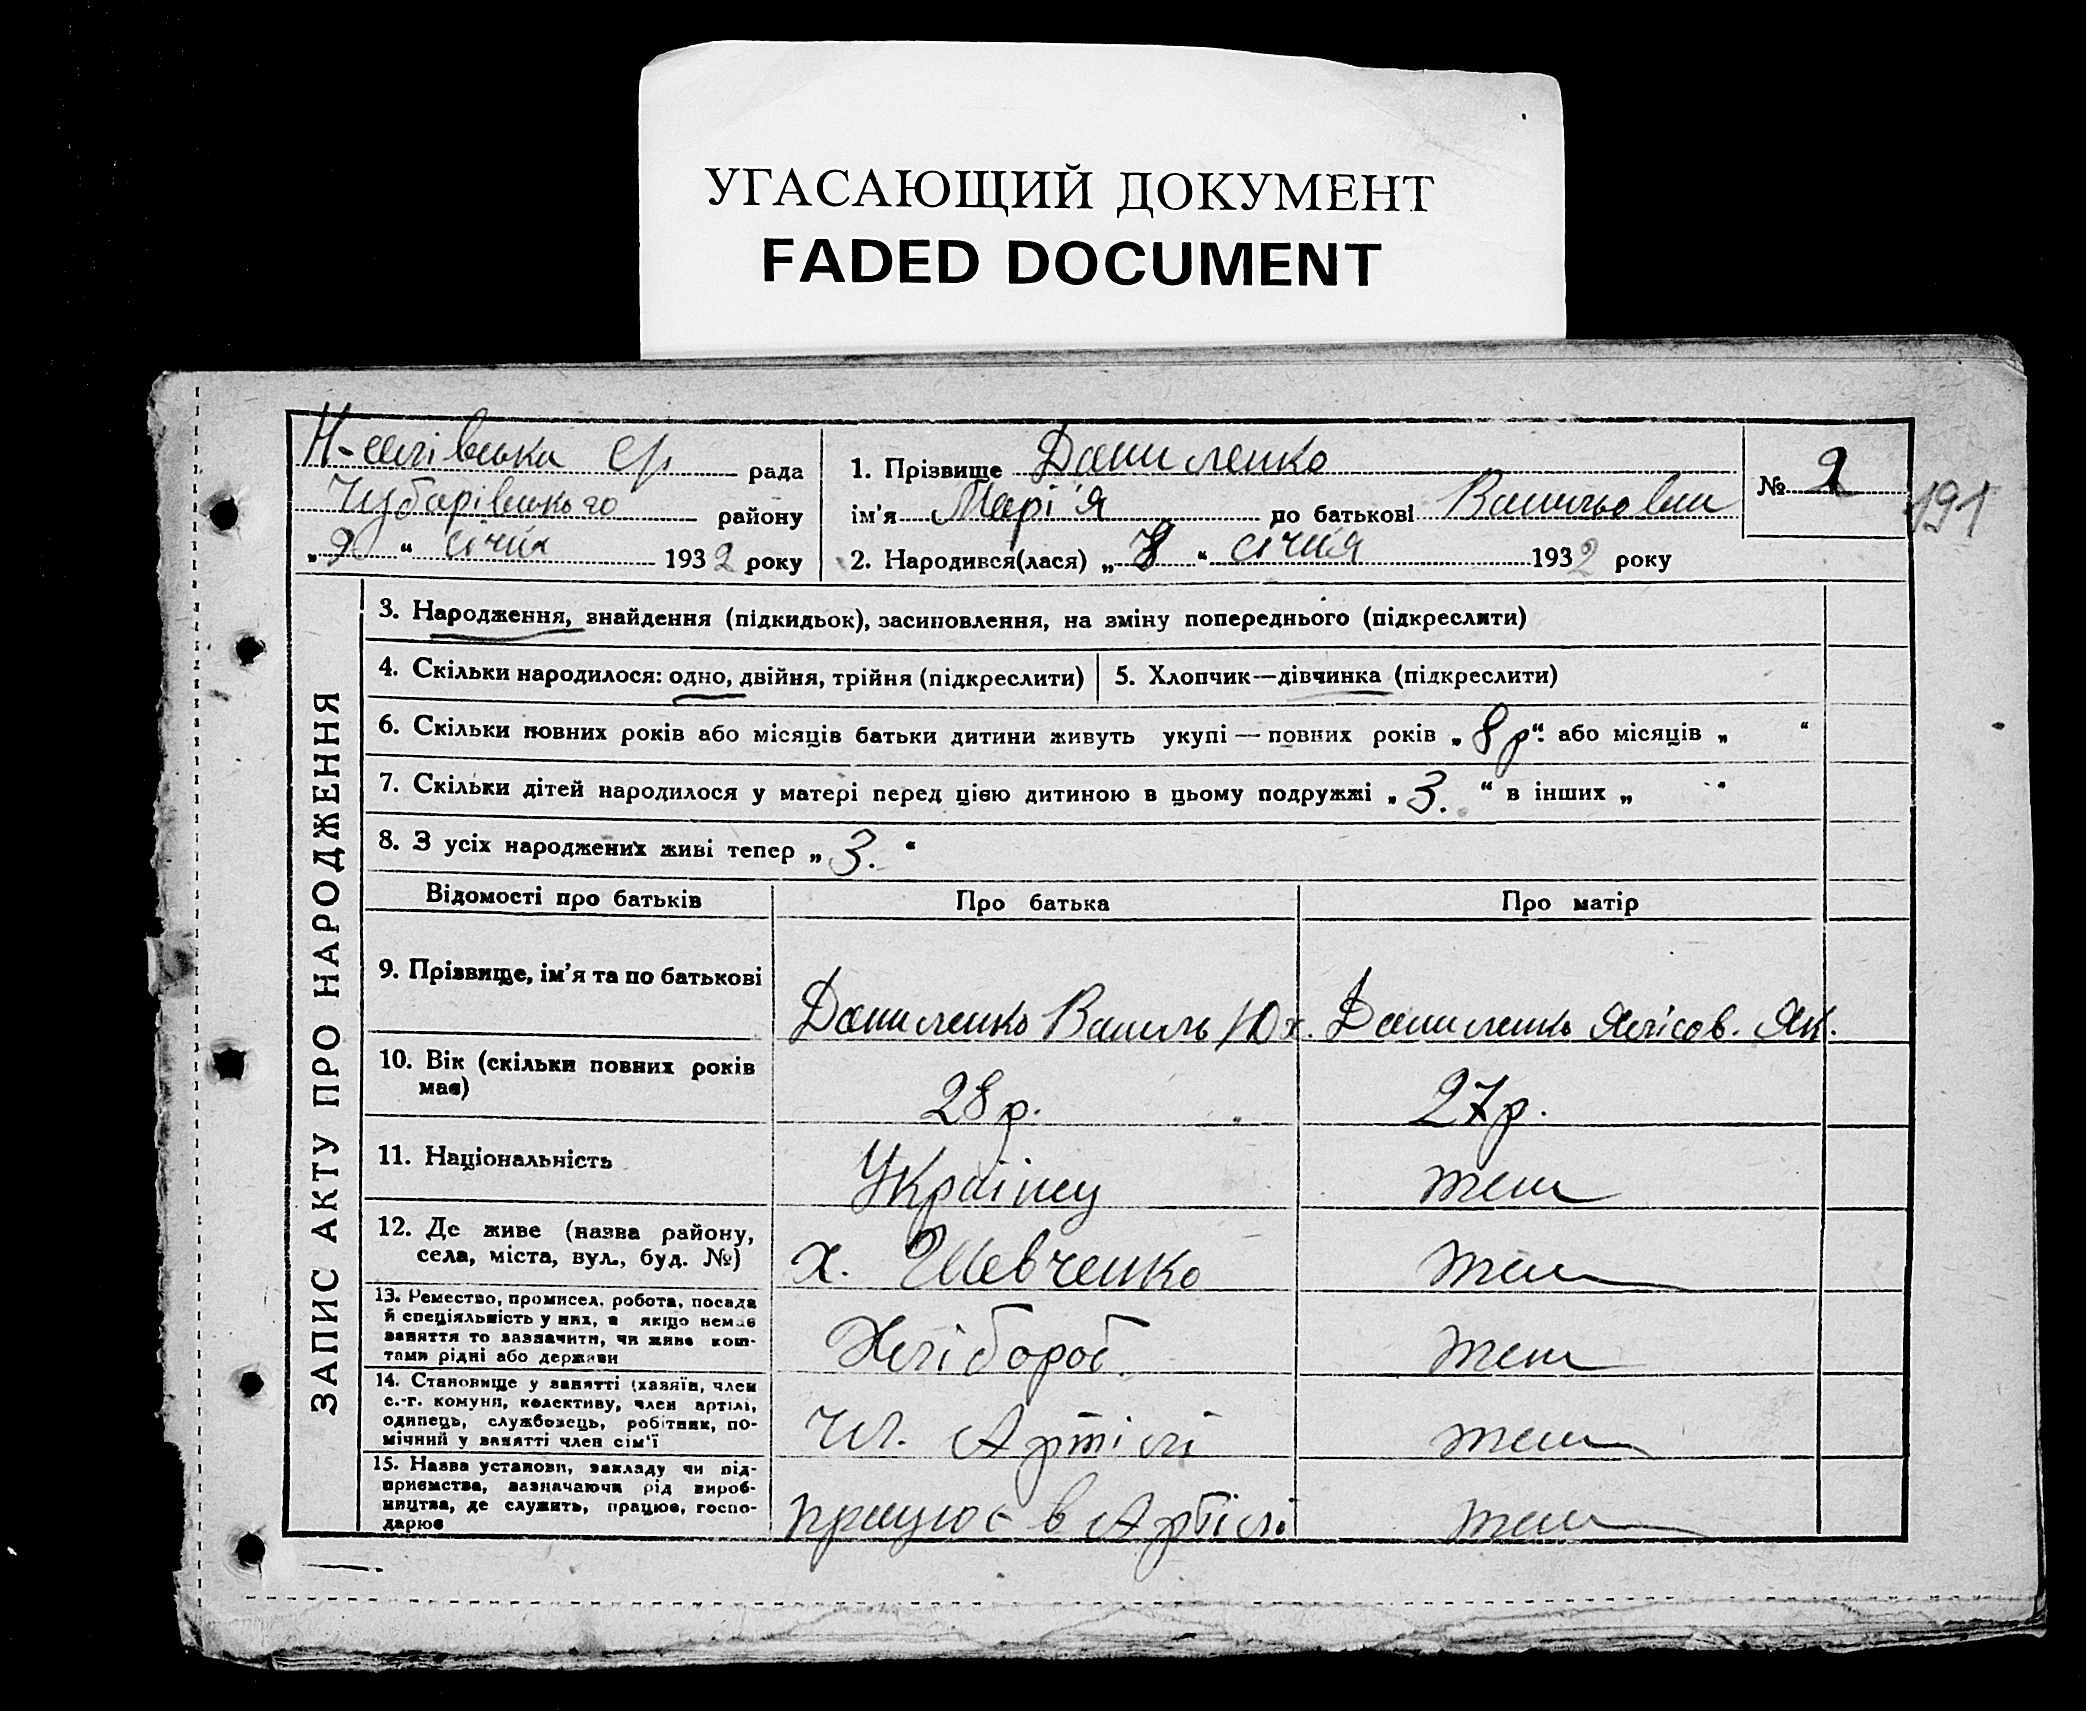 УГАСАЮЩИЙ ДОКУМЕНТ
FADED DOCUMENT
рада
Чубарівського району
„ 9 “ січня 1932 року
1. Прізвище Даниленко
ім'я Марія до батькові Василівни
2. Народився(лася) „ “ січня 1932 року
№ 2
191
ЗАПИС АКТУ ПРО НАРОДЖЕННЯ
3. Народження, знайдення (підкидьок), засиновлення, на зміну попереднього (підкреслити)
4. Скільки народилося: одно, двійня, трійня (підкреслити)
5. Хлопчик—дівчинка (підкреслити)
6. Скільки повних років або місяців батьки дитини живуть укупі — повних років „ 8 р “ або місяців „ “
7. Скільки дітей народилося у матері перед цією дитиною в цьому подружжі „ 3. “ в інших „ “
8. З усіх народжених живі тепер „ 3. “
Відомості про батьків Про батька Про матір
9. Прізвище, ім'я та по батькові
Даниленко Василь Юх. Даниленко Як.
10. Вік (скільки повних років
має)
28 р. 27 р.
11. Національність
Українец теж
12. Де живе (назва району,
села, міста, вул., буд. №)
х. Шевченко теж
13. Ремество, промисел, робота, посада
й спеціяльність у них, а якщо немає
заняття то зазначити, чи живе кош-
тами рідні або держави
Хлібороб. теж
14. Становище у занятті (хазяїн, член
с.-г. комуни, колективу, член артілі,
одинець, службовець, робітник, по-
мічний у занятті член сім'ї
Чл. Артілі теж
15. Назва установи, закладу чи під-
приємства, зазначаючи рід вироб-
ництва, де служить, працює, госпо-
дарює
працює в Артілі теж